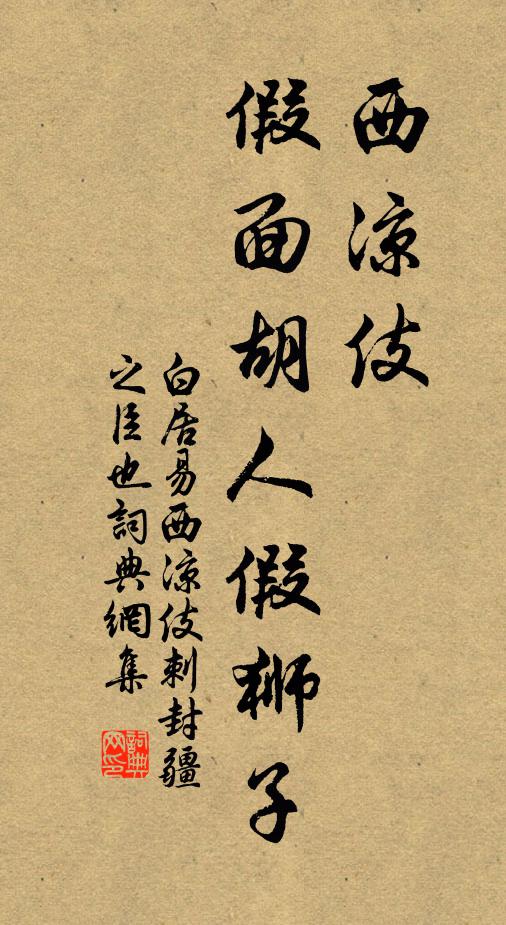 西凉伎
假面胡人假狮子
白居易西凉伎刺封疆
之臣也詞典網集
詞典
网印